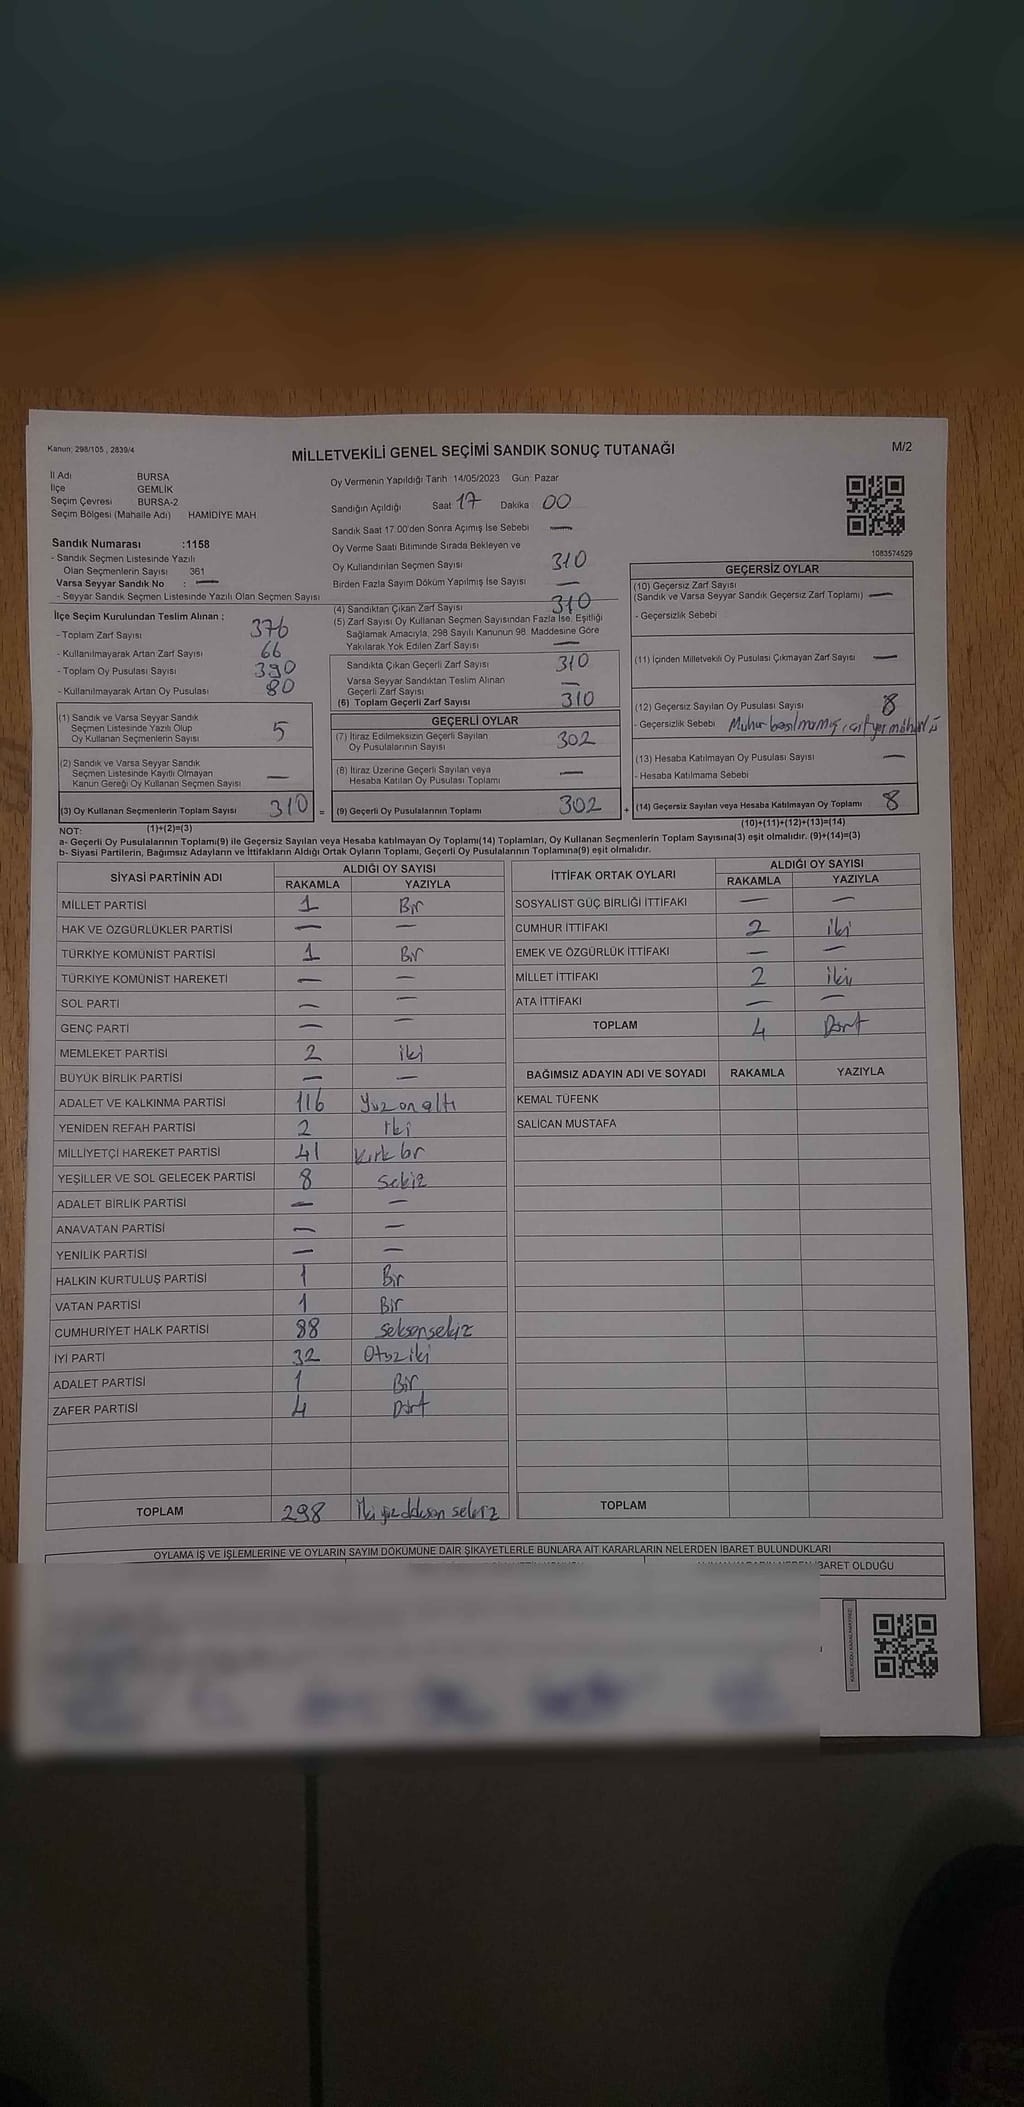 Kanun: 298/105 , 2839/4
MİLLETVEKİLİ GENEL SEÇİMİ SANDIK SONUÇ TUTANAĞI
M/2
İl Adı BURSA
İlçe GEMLİK
Seçim Çevresi BURSA-2
Seçim Bölgesi (Mahalle Adı) HAMİDİYE MAH
Sandık Numarası :1158
- Sandık Seçmen Listesinde Yazılı
Olan Seçmenlerin Sayısı 361
Varsa Seyyar Sandık No : —
- Seyyar Sandık Seçmen Listesinde Yazılı Olan Seçmen Sayısı
İlçe Seçim Kurulundan Teslim Alınan ;
- Toplam Zarf Sayısı 376
- Kullanılmayarak Artan Zarf Sayısı 66
- Toplam Oy Pusulası Sayısı 390
- Kullanılmayarak Artan Oy Pusulası 80
(1) Sandık ve Varsa Seyyar Sandık
Seçmen Listesinde Yazılı Olup
Oy Kullanan Seçmenlerin Sayısı 5
(2) Sandık ve Varsa Seyyar Sandık
Seçmen Listesinde Kayıtlı Olmayan
Kanun Gereği Oy Kullanan Seçmen Sayısı —
(3) Oy Kullanan Seçmenlerin Toplam Sayısı 310 =
Oy Vermenin Yapıldığı Tarih 14/05/2023 Gün Pazar
Sandığın Açıldığı Saat 17 Dakika 00
Sandık Saat 17.00'den Sonra Açılmış İse Sebebi —
Oy Verme Saati Bitiminde Sırada Bekleyen ve
Oy Kullandırılan Seçmen Sayısı 310
Birden Fazla Sayım Döküm Yapılmış İse Sayısı —
(4) Sandıktan Çıkan Zarf Sayısı 310
(5) Zarf Sayısı Oy Kullanan Seçmen Sayısından Fazla İse, Eşitliği
Sağlamak Amacıyla, 298 Sayılı Kanunun 98. Maddesine Göre
Yakılarak Yok Edilen Zarf Sayısı —
Sandıkta Çıkan Geçerli Zarf Sayısı 310
Varsa Seyyar Sandıktan Teslim Alınan
Geçerli Zarf Sayısı —
(6) Toplam Geçerli Zarf Sayısı 310
GEÇERLİ OYLAR
(7) İtiraz Edilmeksizin Geçerli Sayılan
Oy Pusulalarının Sayısı 302
(8) İtiraz Üzerine Geçerli Sayılan veya
Hesaba Katılan Oy Pusulası Toplamı —
(9) Geçerli Oy Pusulalarının Toplamı 302 +
1083574529
GEÇERSİZ OYLAR
(10) Geçersiz Zarf Sayısı
(Sandık ve Varsa Seyyar Sandık Geçersiz Zarf Toplamı) —
- Geçersizlik Sebebi
(11) İçinden Milletvekili Oy Pusulası Çıkmayan Zarf Sayısı —
(12) Geçersiz Sayılan Oy Pusulası Sayısı 8
- Geçersizlik Sebebi Mühür basılmamış, çift yer mühürlü
(13) Hesaba Katılmayan Oy Pusulası Sayısı —
- Hesaba Katılmama Sebebi
(14) Geçersiz Sayılan veya Hesaba Katılmayan Oy Toplamı 8
NOT: (1)+(2)=(3) (10)+(11)+(12)+(13)=(14)
a- Geçerli Oy Pusulalarının Toplamı(9) ile Geçersiz Sayılan veya Hesaba katılmayan Oy Toplamı(14) Toplamları, Oy Kullanan Seçmenlerin Toplam Sayısına(3) eşit olmalıdır. (9)+(14)=(3)
b- Siyasi Partilerin, Bağımsız Adayların ve İttifakların Aldığı Ortak Oyların Toplamı, Geçerli Oy Pusulalarının Toplamına(9) eşit olmalıdır.
SİYASİ PARTİNİN ADI ALDIĞI OY SAYISI
RAKAMLA YAZIYLA
MİLLET PARTİSİ 1 Bir
HAK VE ÖZGÜRLÜKLER PARTİSİ — —
TÜRKİYE KOMÜNİST PARTİSİ 1 Bir
TÜRKİYE KOMÜNİST HAREKETİ — —
SOL PARTİ — —
GENÇ PARTİ — —
MEMLEKET PARTİSİ 2 iki
BÜYÜK BİRLİK PARTİSİ — —
ADALET VE KALKINMA PARTİSİ 116 Yüz on altı
YENİDEN REFAH PARTİSİ 2 İki
MİLLİYETÇİ HAREKET PARTİSİ 41 Kırk bir
YEŞİLLER VE SOL GELECEK PARTİSİ 8 Sekiz
ADALET BİRLİK PARTİSİ — —
ANAVATAN PARTİSİ — —
YENİLİK PARTİSİ — —
HALKIN KURTULUŞ PARTİSİ 1 Bir
VATAN PARTİSİ 1 Bir
CUMHURİYET HALK PARTİSİ 88 Seksensekiz
İYİ PARTİ 32 Otuziki
ADALET PARTİSİ 1 Bir
ZAFER PARTİSİ 4 Dört
TOPLAM 298 İki yüz doksan sekiz
İTTİFAK ORTAK OYLARI ALDIĞI OY SAYISI
RAKAMLA YAZIYLA
SOSYALİST GÜÇ BİRLİĞİ İTTİFAKI — —
CUMHUR İTTİFAKI 2 iki
EMEK VE ÖZGÜRLÜK İTTİFAKI — —
MİLLET İTTİFAKI 2 iki
ATA İTTİFAKI — —
TOPLAM 4 Dört
BAĞIMSIZ ADAYIN ADI VE SOYADI RAKAMLA YAZIYLA
KEMAL TÜFENK
SALİCAN MUSTAFA
TOPLAM
OYLAMA İŞ VE İŞLEMLERİNE VE OYLARIN SAYIM DÖKÜMÜNE DAİR ŞİKAYETLERLE BUNLARA AİT KARARLARIN NELERDEN İBARET BULUNDUKLARI
İBARET OLDUĞU